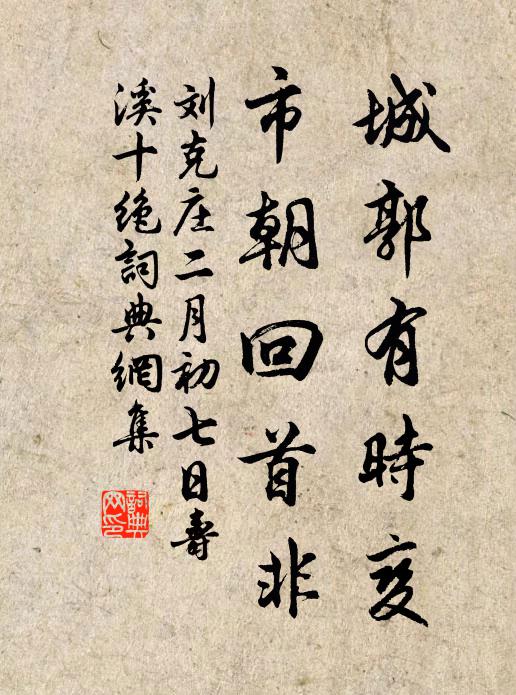 城郭有時变
市朝回首非
刘克庄二月初七日壽
溪十绝詞典網集
詞典网印